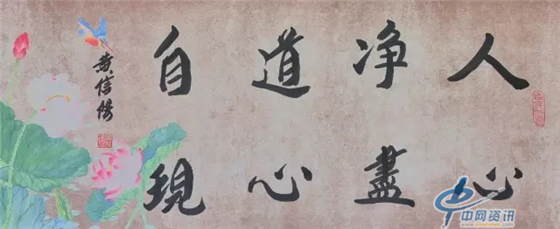 人心
净盡
道心
自現
黄信陽
中网资讯